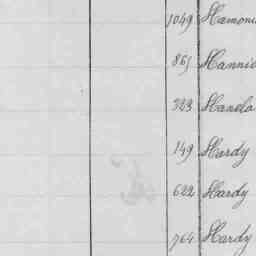 1049 Hamon
865 Hannie
323 Harela
149 Hardy
622 Hardy
764 Hardy